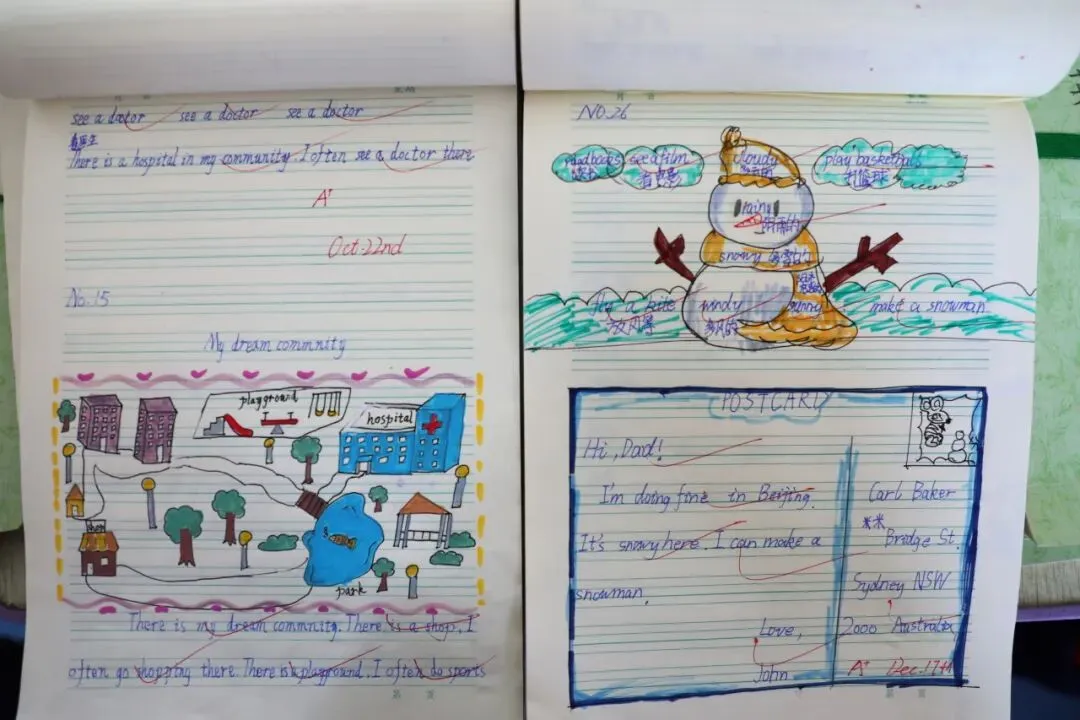 see a doctor see a doctor see a doctor
看医生
There is a hospital in my community. I often see a doctor there.
A+
Oct 22nd
No. 15
My dream commnity
playground
hospital
park
There is my dream commnity. There is a shop. I
often go shopping there. There is a playground. I often do sports
NO.26
read books
see a film
看电影
cloudy
多云的
play basketball
打篮球
rainy
snowy
fly a kite
放风筝
windy
多风的
sunny
make a snowman
POSTCARD
Hi, Dad!
I'm doing fine in Beijing.
It's snowy here. I can make a
snowman.
Love,
John
Carl Baker
Bridge St.
Sydney NSW
2000 Australia
A+ Dec. 17th